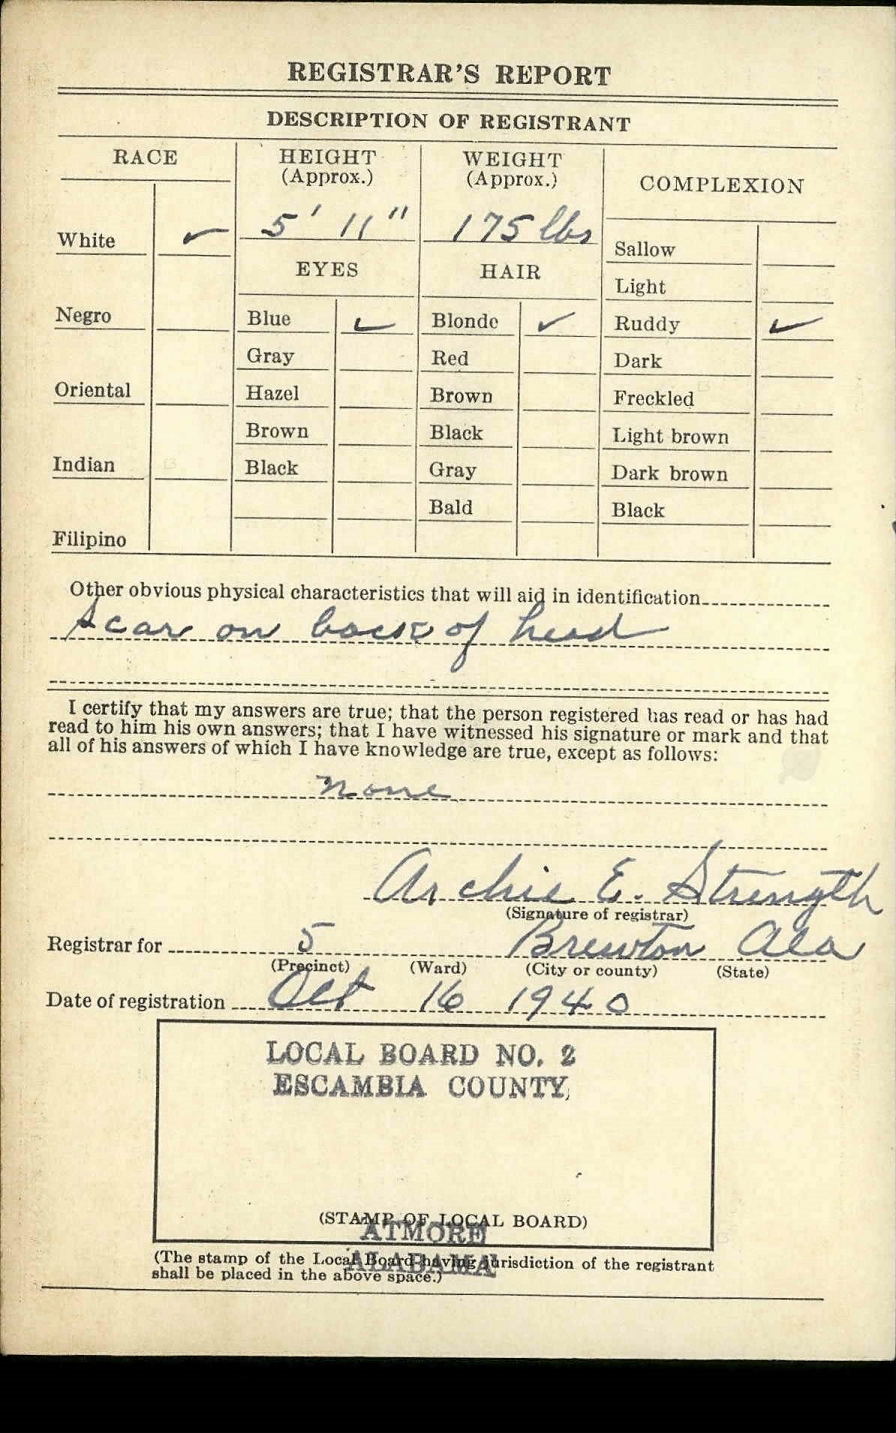 REGISTRAR'S REPORT
DESCRIPTION OF REGISTRANT
RACE
HEIGHT
(Approx.)
WEIGHT
(Approx.)
COMPLEXION
5' 11"
175 lbs
White ✓
Sallow
EYES
HAIR
Light
Negro
Blue ✓
Blonde ✓
Ruddy ✓
Gray
Red
Dark
Oriental
Hazel
Brown
Freckled
Brown
Black
Light brown
Indian
Black
Gray
Dark brown
Bald
Black
Filipino
Other obvious physical characteristics that will aid in identification
Scar on back of head
I certify that my answers are true; that the person registered has read or has had
read to him his own answers; that I have witnessed his signature or mark and that
all of his answers of which I have knowledge are true, except as follows:
none
Archie E. Strength
(Signature of registrar)
Registrar for 5 Brewton Ala
(Precinct) (Ward) (City or county) (State)
Date of registration Oct 16 1940
LOCAL BOARD NO. 2
ESCAMBIA COUNTY,
(STAMP OF LOCAL BOARD)
ATMORE
(The stamp of the Local Board having jurisdiction of the registrant
ALABAMA
shall be placed in the above space.)